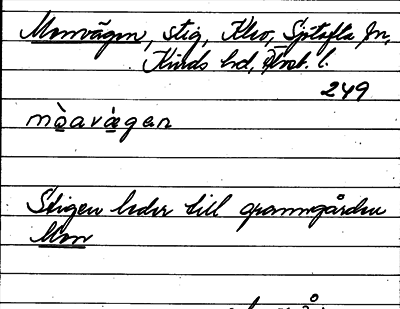 Monvägen, stig, Klvo, Sjötofta sn,
Kinds hd, Älvsb. l.
249
mòavä̀gen
Stigen leder till granngården
Mon